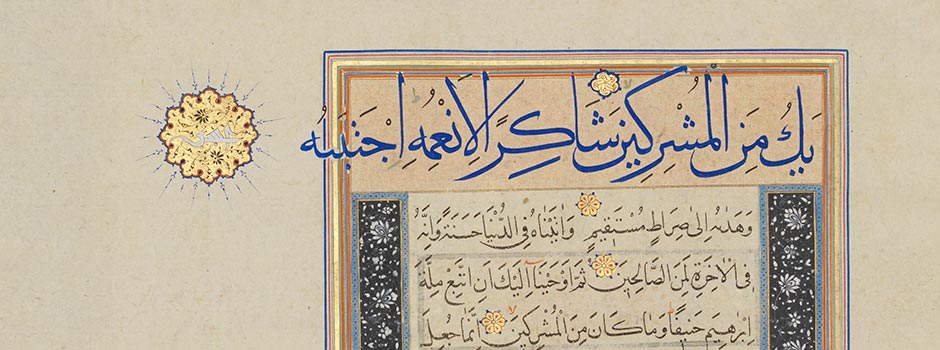 يَكُ مِنَ الْمُشْرِكِينَ شَاكِرًا لِأَنْعُمِهِ اجْتَبَىٰهُ
وَهَدَىٰهُ اِلىٰ صِرَاطٍ مُسْتَقِيمٍ وَاٰتَيْنَاهُ فِى الدُّنْيَا حَسَنَةً وَاِنَّهُ
فِى الْاٰخِرَةِ لَمِنَ الصَّالِحِينَ ثُمَّ اَوْحَيْنَآ اِلَيْكَ اَنِ اتَّبِعْ مِلَّةَ
اِبْرٰهِيمَ حَنِيفًا وَمَا كَانَ مِنَ الْمُشْرِكِينَ اِنَّمَا جُعِلَ